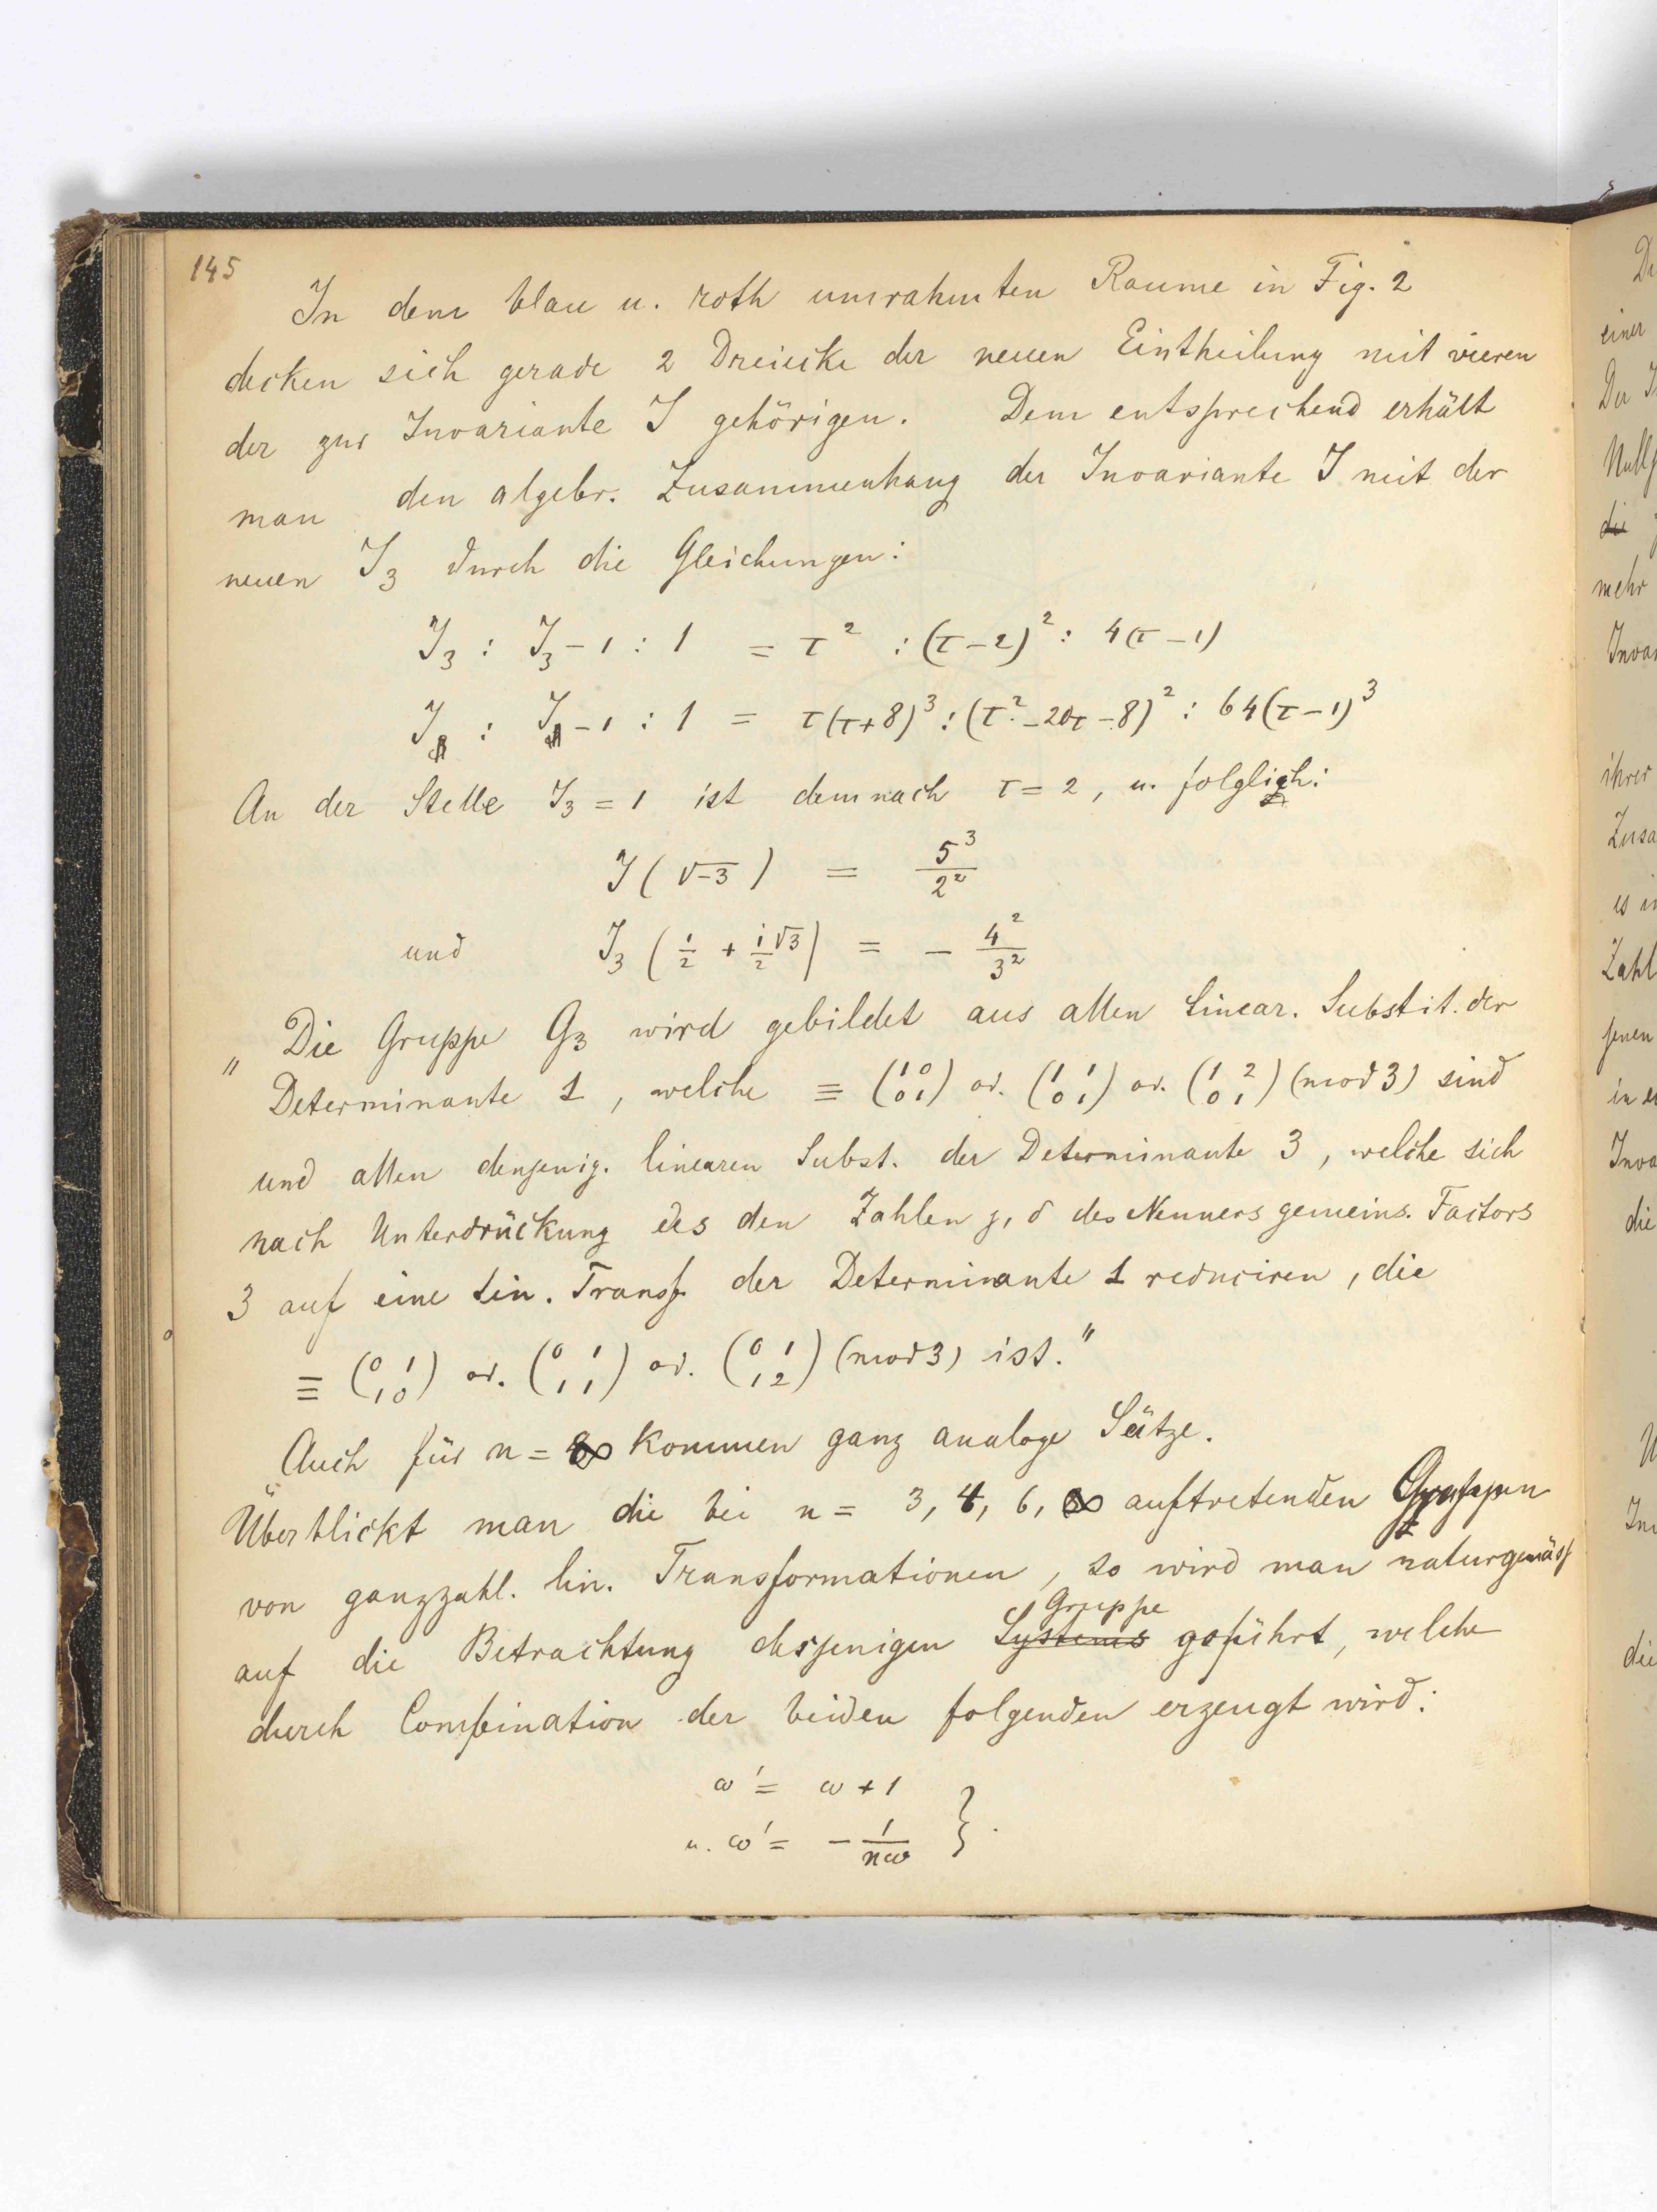 145
In dem blau u. roth umrahmten Raume in Fig. 2
decken sich gerade 2 Dreiecke der neuen Eintheilung mit vieren
der zur Invariante J gehörigen. Dem entsprechend erhält
man den algebr. Zusammenhang der Invariante J mit der
neuen J₃ durch die Gleichungen:
J₃ : J₃ − 1 : 1 = τ² : (τ−2)² : 4(τ−1)
J : J − 1 : 1 = τ(τ+8)³ : (τ² − 20τ − 8)² : 64(τ−1)³
An der Stelle J₃ = 1 ist demnach τ = 2, u. folglich:
J(√−3) = 5³/2²
und J₃(1/2 + i√3/2) = − 4²/3²
„Die Gruppe G₃ wird gebildet aus allen linear. Substit. der
Determinante 1, welche ≡ (1 0 / 0 1) od. (1 1 / 0 1) od. (1 2 / 0 1) (mod 3) sind
und allen denjenig. linearen Subst. der Determinante 3, welche sich
nach Unterdrückung des den Zahlen γ, δ des Nenners gemeins. Factors
3 auf eine lin. Transf. der Determinante 1 reduciren, die
≡ (0 1 / 1 0) od. (0 1 / 1 1) od. (0 1 / 1 2) (mod 3) ist."
Auch für n = ∞ kommen ganz analoge Sätze.
Überblickt man die bei n = 3, 4, 6, ∞ auftretenden Gruppen
von ganzzahl. lin. Transformationen, so wird man naturgemäss
Gruppe
auf die Betrachtung desjenigen Systems geführt, welche
durch Combination der beiden folgenden erzeugt wird:
ω' = ω + 1
u. ω' = − 1/nω }.
De
einer
Der J
Nullp
die
mehr
Invar
ihrer
Zusa
es in
Zahl
jenen
in e
Inva
die
die